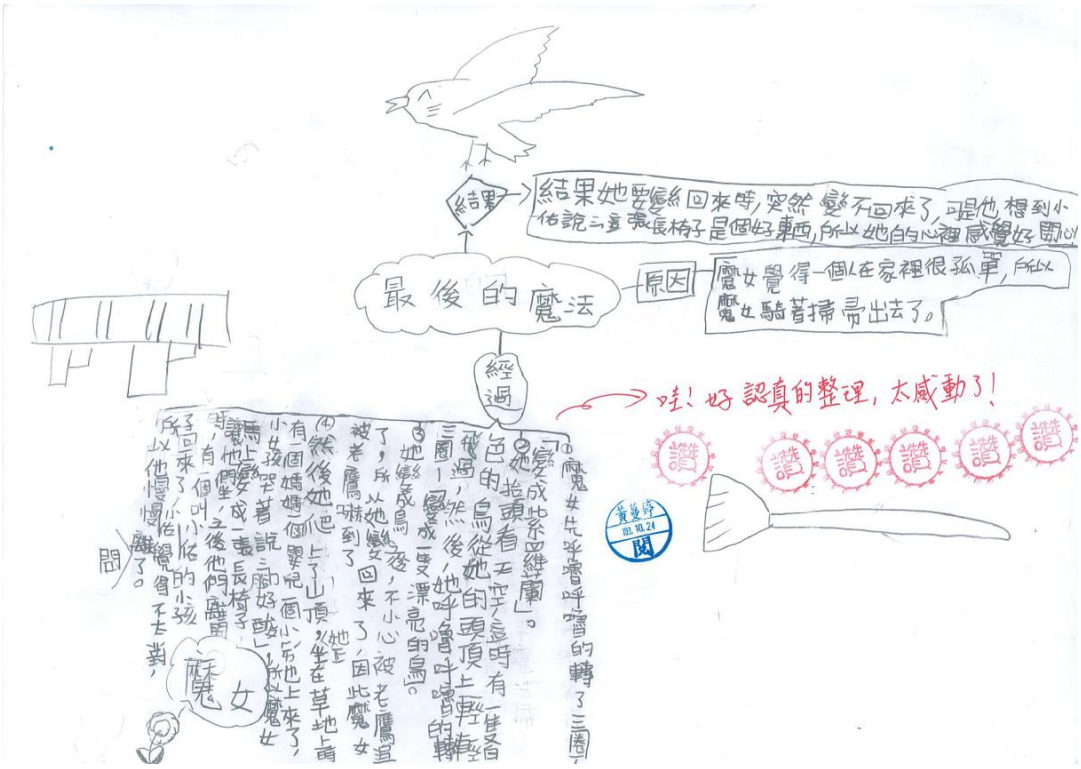 結果
結果她要變回來時,突然變不回來了,可是他,想到小
佑說這張長椅子是個好東西,所以她的心裡感覺好開心
最後的魔法
原因
魔女覺得一個人在家裡很孤單,所以
魔女騎著掃帚出去了。
經過
哇!好認真的整理,太感動了!
讚
讚
讚
讚
讚
黃
10.24
閱
①魔女先呼嚕呼嚕的轉了三圈,
「變成紫羅蘭」。
②她抬頭看天空,這時有一隻
色的鳥從她的頭頂上輕輕
飛過,然後,她呼嚕呼嚕的轉
三圈「變成一隻漂亮的鳥」。
③她變成鳥後,不小心被老鷹追
了,所以她變回來了,因此魔女
被老鷹嚇到了
④然後她爬上了山頂,坐在草地上
有一個媽媽一個嬰兒一個小男也上來了,
小女孩哭著說「腳好酸」,所以魔女
馬上變成一張長椅子
讓他們坐,之後他們離開
時,有一個叫小佑的小孩
子回來了,小佑覺得不太對,
所以他慢慢離開了。
魔女